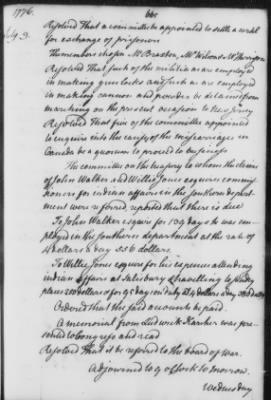 1776. 660
July 9.
Resolved That a committee be appointed to settle a cartel
for exchange of prisoners
The members chosen Mr Braxton, Mr Wilson & Mr Harrison
Resolved That such of the militia as are employed
in making gun locks and such as are employed
in making cannon and powder be detained from
marching on the present occasion to New Jersey
Resolved That five of the committee appointed
to enquire into the causes of the miscarriages in
Canada be a quorum to proceed to business
The committee on the treasury to whom the claims
of John Walker and Willie Jones esquires commis
sioners for indian affairs in the southern depart
ment were referred, reported that there is due
To John Walker esquire for 139 days he was em
ployed in the southern department at the rate of
4 dollars a day 556 dollars.
To Willie Jones esquire for his expences attending
indian affairs at Salisbury & travelling to
places dollars & for days on duty at 4 dollars a day dollars
Ordered that the said accounts be paid.
A memorial from Ludwick Karcher was pre
sented to Congress and read
Resolved That it be referred to the board of war.
Adjourned to 9 oClock to Morrow.
Wednesday